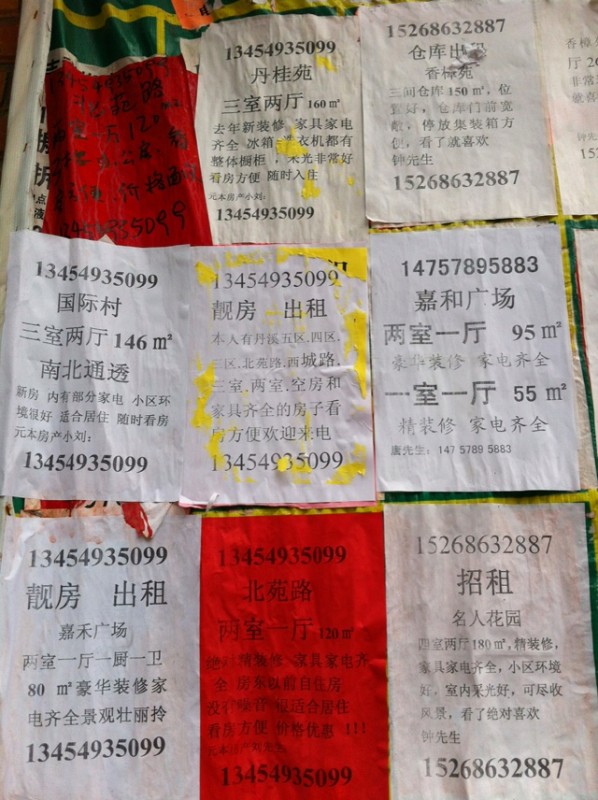 13454935099
丹桂苑
三室两厅 160㎡
去年新装修 家具家电
齐全 冰箱 洗衣机都有
整体橱柜，采光非常好
看房方便 随时入住
元本房产小刘：
13454935099
15268632887
仓库出
香樟苑
三间仓库150㎡，位
置好，仓库门前宽
敞，停放集装箱方
便，看了就喜欢
钟先生
15268632887
香樟
厅
非常
喜
苑 路
120
13454935099
13454935099
国际村
三室两厅 146㎡
南北通透
新房 内有部分家电 小区环
境很好 适合居住 随时看房
元本房产小刘：
13454935099
13454935099
靓房 出租
本人有丹溪五区.四区.
三区.北苑路.西城路.
三室.两室.空房和
家具齐全的房子看
房方便欢迎来电
13454935099
14757895883
嘉和广场
两室一厅 95㎡
豪华装修 家电齐全
一室一厅 55㎡
精装修 家电齐全
唐先生：147 5789 5883
13454935099
靓房 出租
嘉禾广场
两室一厅一厨一卫
80 ㎡豪华装修家
电齐全景观壮丽拎
13454935099
13454935099
北苑路
两室一厅 120㎡
绝对精装修 家具家电齐
全 房东以前自住房
没有噪音 很适合居住
看房方便 价格优惠 !!!
元本房产刘先生：
13454935099
15268632887
招租
名人花园
四室两厅180㎡,精装修,
家具家电齐全，小区环境
好，室内采光好，可尽收
风景，看了绝对喜欢
钟先生
15268632887